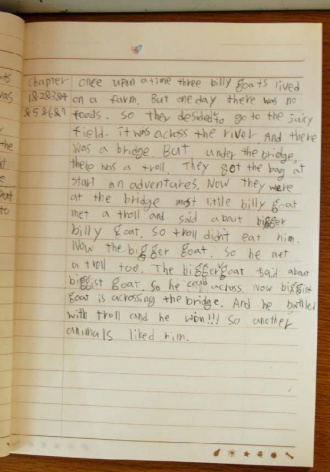 chapter
1&2&3&4
&5&6&7
once upon a time three billy goats lived
on a farm. But one day there was no
foods. So they desided to go to the juicy
field. it was across the river And there
was a bridge. But under the bridge,
there was a troll. They got the bag at
start an adventures. Now they were
at the bridge most little billy goat
met a troll and said about bigger
billy goat. So troll didn't eat him.
Now the bigger goat. so he met
a troll too. The bigger goat said about
biggist goat. So he could across. Now biggist
goat is acrossing the bridge. And he battled
with troll and he won!!! So another
animals liked him.